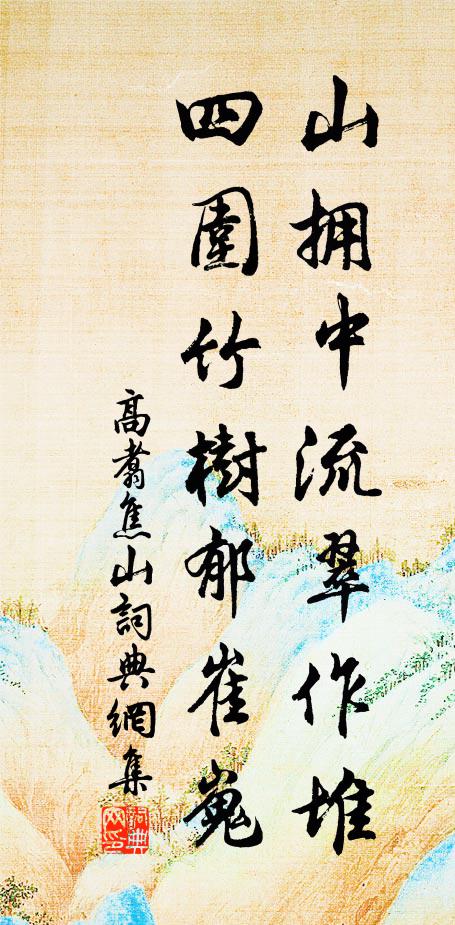 山拥中流翠作堆
四圍竹樹郁崔嵬
高翥焦山詞典網集
詞典网印